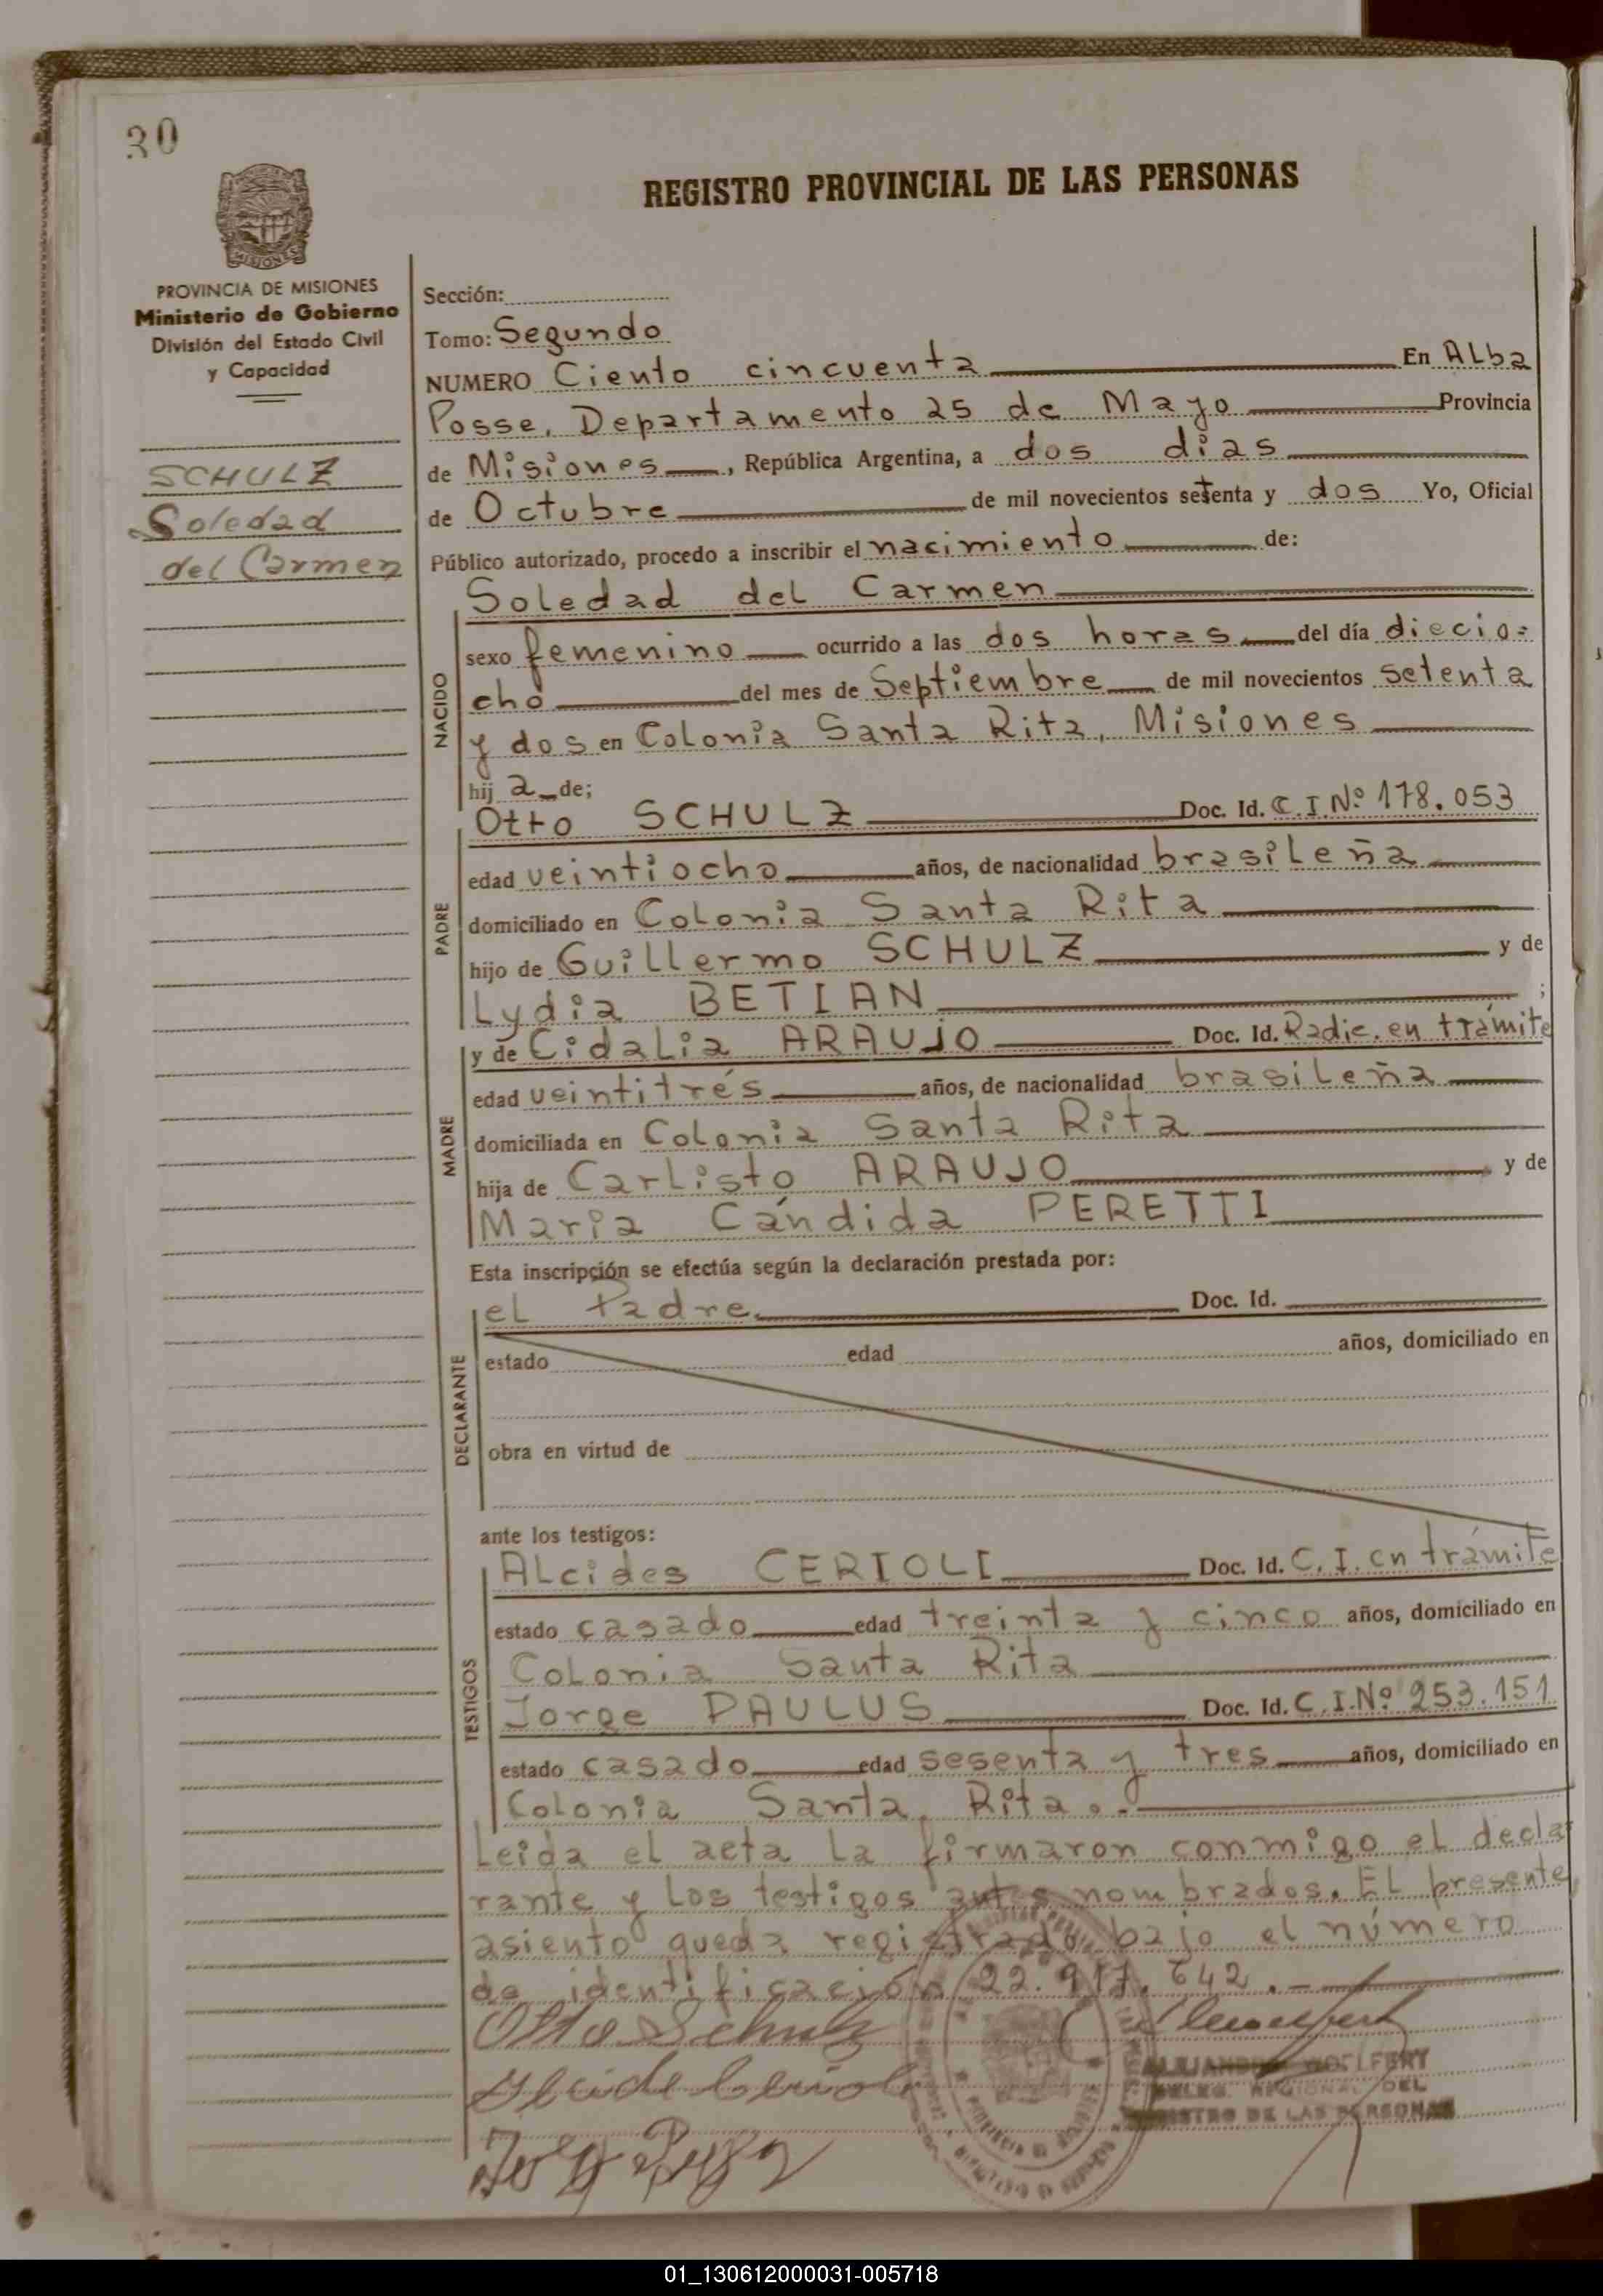 30
REGISTRO PROVINCIAL DE LAS PERSONAS
MISIONES
PROVINCIA DE MISIONES
Ministerio de Gobierno
División del Estado Civil
y Capacidad
SCHULZ
Soledad
del Carmen
Sección:
Tomo: Segundo
NUMERO Ciento cincuenta En Alba
Posse, Departamento 25 de Mayo Provincia
de Misiones, República Argentina, a dos dias
de Octubre de mil novecientos setenta y dos Yo, Oficial
Público autorizado, procedo a inscribir el nacimiento de:
NACIDO
Soledad del Carmen
sexo femenino ocurrido a las dos horas del día diecio=
cho del mes de Septiembre de mil novecientos setenta
y dos en Colonia Santa Rita, Misiones
hij a de;
PADRE
Otto SCHULZ Doc. Id. C.I.Nº 178.053
edad veintiocho años, de nacionalidad brasileña
domiciliado en Colonia Santa Rita
hijo de Guillermo SCHULZ y de
Lydia BETIAN ;
MADRE
y de Cidalia ARAUJO Doc. Id. Radic. en trámite
edad veintitrés años, de nacionalidad brasileña
domiciliada en Colonia Santa Rita
hija de Carlisto ARAUJO y de
María Cándida PERETTI
Esta inscripción se efectúa según la declaración prestada por:
DECLARANTE
el Padre. Doc. Id.
estado edad años, domiciliado en
obra en virtud de
ante los testigos:
TESTIGOS
Alcides CERIOLI Doc. Id. C.I. en trámite
estado casado edad treinta y cinco años, domiciliado en
Colonia Santa Rita
Jorge PAULUS Doc. Id. C.I.Nº 253.151
estado casado edad sesenta y tres años, domiciliado en
Colonia Santa Rita.-
Leida el acta la firmaron conmigo el decla
rante y los testigos antes nombrados. El presente
asiento queda registrado bajo el número
de identificación 22.917.642.-
Otto Schulz
DELEG. REGIONAL DEL
REGISTRO DE LAS PERSONAS
01_130612000031-005718